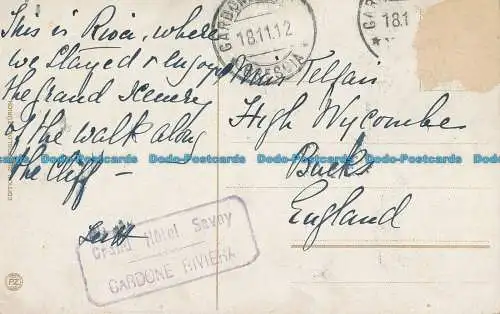 This is Riva, where
we stayed & enjoyed
the grand scenery
of the walk along
the cliff –
Grand Hotel Savoy
GARDONE RIVIERA
GARDONE
18.11.12
BRESCIA
GAR
18.1
Miss Telfair
High Wycombe
Bucks
England
Dodo-Postcards Dodo-Postcards Dodo-Postcards Dodo-Postcards
PZ